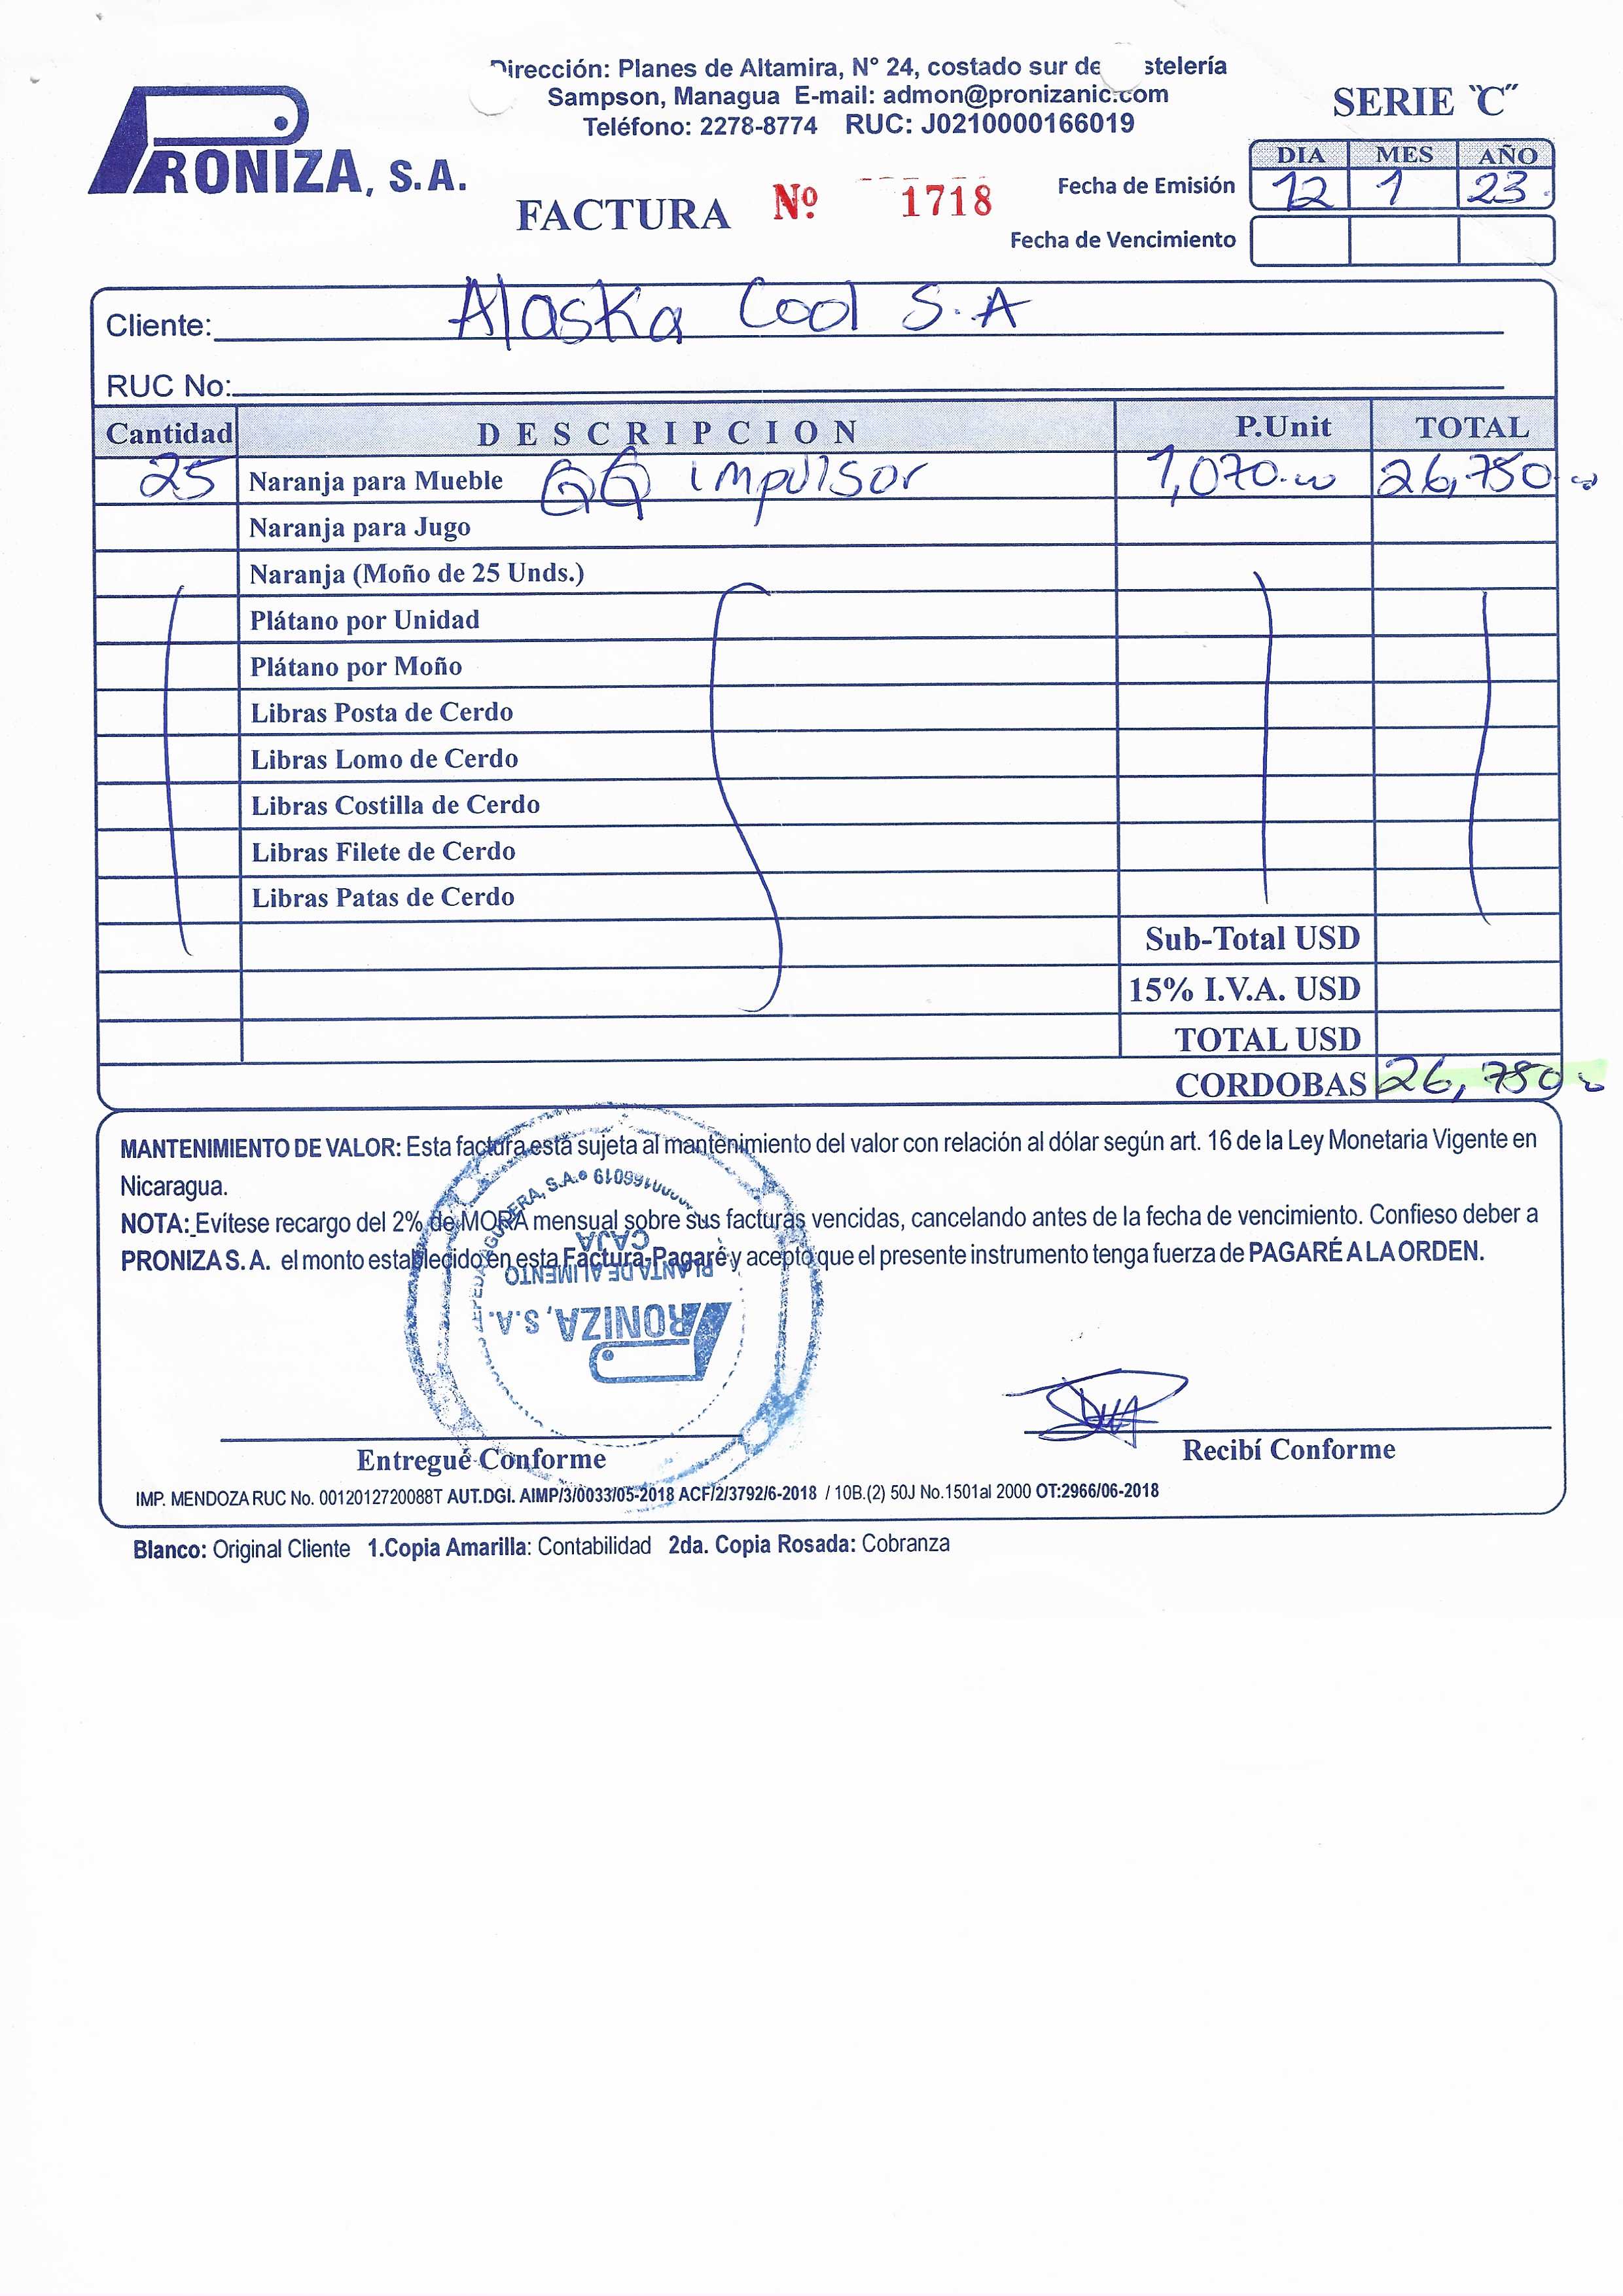 Dirección: Planes de Altamira, N° 24, costado sur de stelería
Sampson, Managua E-mail: admon@pronizanic.com
Teléfono: 2278-8774 RUC: J0210000166019
PRONIZA, S.A.
SERIE "C"
FACTURA Nº 1718
DIA MES AÑO
Fecha de Emisión 12 1 23
Fecha de Vencimiento
Cliente: Alaska Cool S.A
RUC No:
Cantidad DESCRIPCION P.Unit TOTAL
25 Naranja para Mueble QQ impulsor 1,070.00 26,750.00
Naranja para Jugo
Naranja (Moño de 25 Unds.)
Plátano por Unidad
Plátano por Moño
Libras Posta de Cerdo
Libras Lomo de Cerdo
Libras Costilla de Cerdo
Libras Filete de Cerdo
Libras Patas de Cerdo
Sub-Total USD
15% I.V.A. USD
TOTAL USD
CORDOBAS 26,750.00
MANTENIMIENTO DE VALOR: Esta factura está sujeta al mantenimiento del valor con relación al dólar según art. 16 de la Ley Monetaria Vigente en
Nicaragua.
NOTA: Evítese recargo del 2% de MORA mensual sobre sus facturas vencidas, cancelando antes de la fecha de vencimiento. Confieso deber a
PRONIZA S.A. el monto establecido en esta Factura-Pagaré y acepto que el presente instrumento tenga fuerza de PAGARÉ A LA ORDEN.
PRONIZA, S.A.
PLANTA DE ALIMENTO
CAJA
Entregué Conforme Recibí Conforme
IMP. MENDOZA RUC No. 0012012720088T AUT.DGI. AIMP/3/0033/05-2018 ACF/2/3792/6-2018 / 10B.(2) 50J No.1501al 2000 OT:2966/06-2018
Blanco: Original Cliente 1.Copia Amarilla: Contabilidad 2da. Copia Rosada: Cobranza